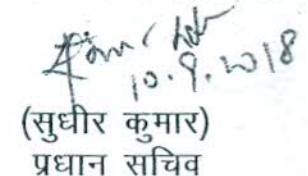 10.9.2018
(सुधीर कुमार)
प्रधान सचिव